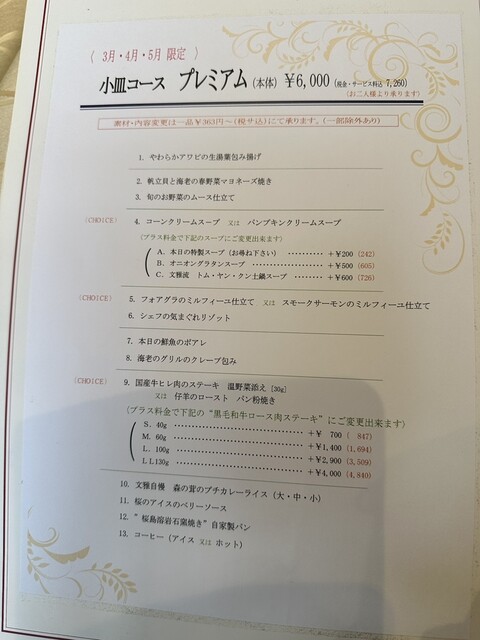 〈 3月・4月・5月 限定 〉
小皿コース プレミアム (本体) ￥6,000 (税金・サービス料込 7,260)
(お二人様より承ります)
素材・内容変更は一品￥363円～(税サ込)にて承ります。(一部除外あり)
1. やわらかアワビの生湯葉包み揚げ
2. 帆立貝と海老の春野菜マヨネーズ焼き
3. 旬のお野菜のムース仕立て
(CHOICE) 4. コーンクリームスープ 又は パンプキンクリームスープ
(プラス料金で下記のスープにご変更出来ます)
A. 本日の特製スープ (お尋ね下さい) ･･････････ +￥200 (242)
B. オニオングラタンスープ ･･････････････････ +￥500 (605)
C. 文雅流 トム・ヤン・クン土鍋スープ ･･････ +￥600 (726)
(CHOICE) 5. フォアグラのミルフィーユ仕立て 又は スモークサーモンのミルフィーユ仕立て
6. シェフの気まぐれリゾット
7. 本日の鮮魚のポアレ
8. 海老のグリルのクレープ包み
(CHOICE) 9. 国産牛ヒレ肉のステーキ 温野菜添え [30g]
又は 仔羊のロースト パン粉焼き
(プラス料金で下記の"黒毛和牛ロース肉ステーキ"にご変更出来ます)
S. 40g ････････････････････････････ +￥ 700 ( 847)
M. 60g ････････････････････････････ +￥1,400 (1,694)
L. 100g ････････････････････････････ +￥2,900 (3,509)
LL130g ････････････････････････････ +￥4,000 (4,840)
10. 文雅自慢 森の茸のプチカレーライス (大・中・小)
11. 桜のアイスのベリーソース
12. "桜島溶岩石窯焼き"自家製パン
13. コーヒー (アイス 又は ホット)